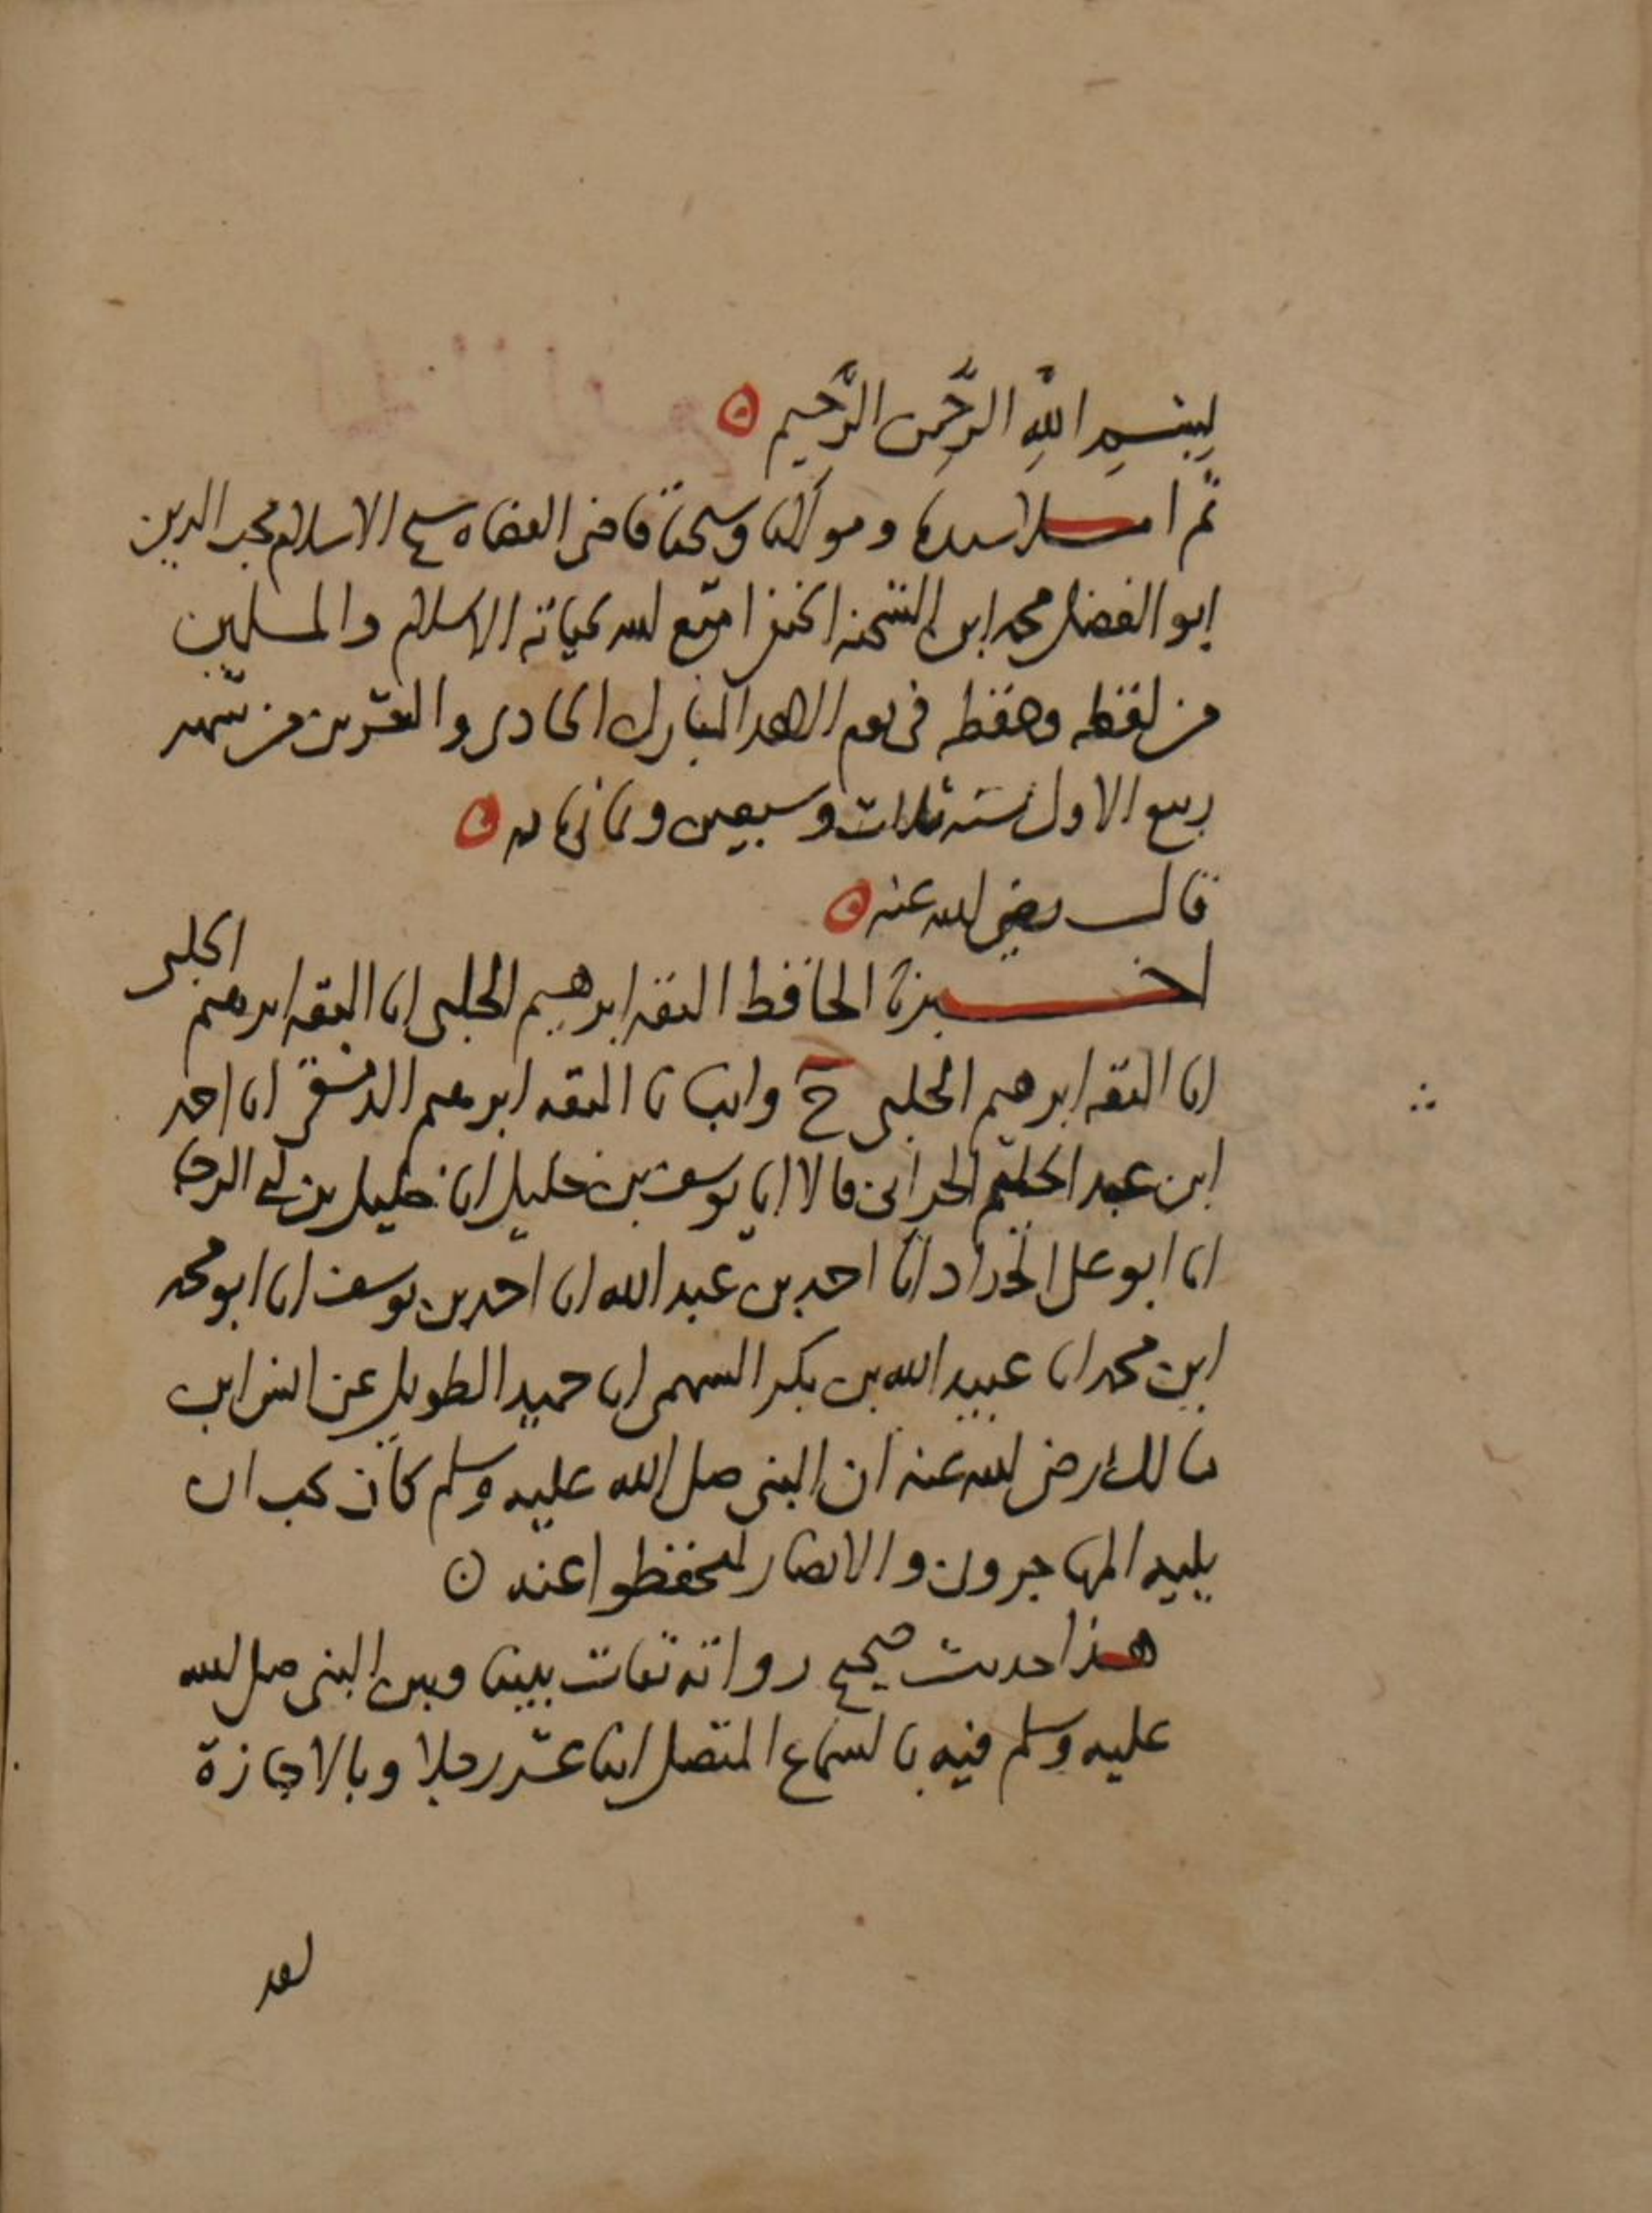 بِسْمِ اللهِ الرَّحْمنِ الرَّحِيمِ
ثم املا سيدنا ومولانا وشيخنا قاضى القضاه شيخ الاسلام محب الدين
ابو الفضل محمد ابن الشحنه الحنفى امتع الله بحياته الاسلام والمسلمين
من لفظه وحفظه فى يوم الاحد المبارك الحادى والعشرين من شهر
ربيع الاول سنه ثلاث وسبعين وثمانمايه
قال رضي الله عنه
اخبرنا الحافظ الثقه ابرهيم الحلبى انا الثقه ابرهيم الحلبى
انا الثقه ابرهيم الحلبى ح وانبانا الثقه ابرهيم الدمشقى انا احمد
ابن عبد الحليم الحرانى قالا انا يوسف بن خليل انا خليل بن ابى الرجا
انا ابو على الحداد انا احمد بن عبد الله انا احمد بن يوسف انا ابو محمد
ابن محمد انا عبيد الله بن بكر السهمى انا حميد الطويل عن انس ابن
مالك رضى الله عنه ان النبى صلى الله عليه وسلم كان يحب ان
يليه المهاجرون والانصار ليحفظوا عنه
هذا حديث صحيح رواته ثقات بيننا وبين النبى صلى الله
عليه وسلم فيه بالسماع المتصل اثنا عشر رجلا وبالاجازة